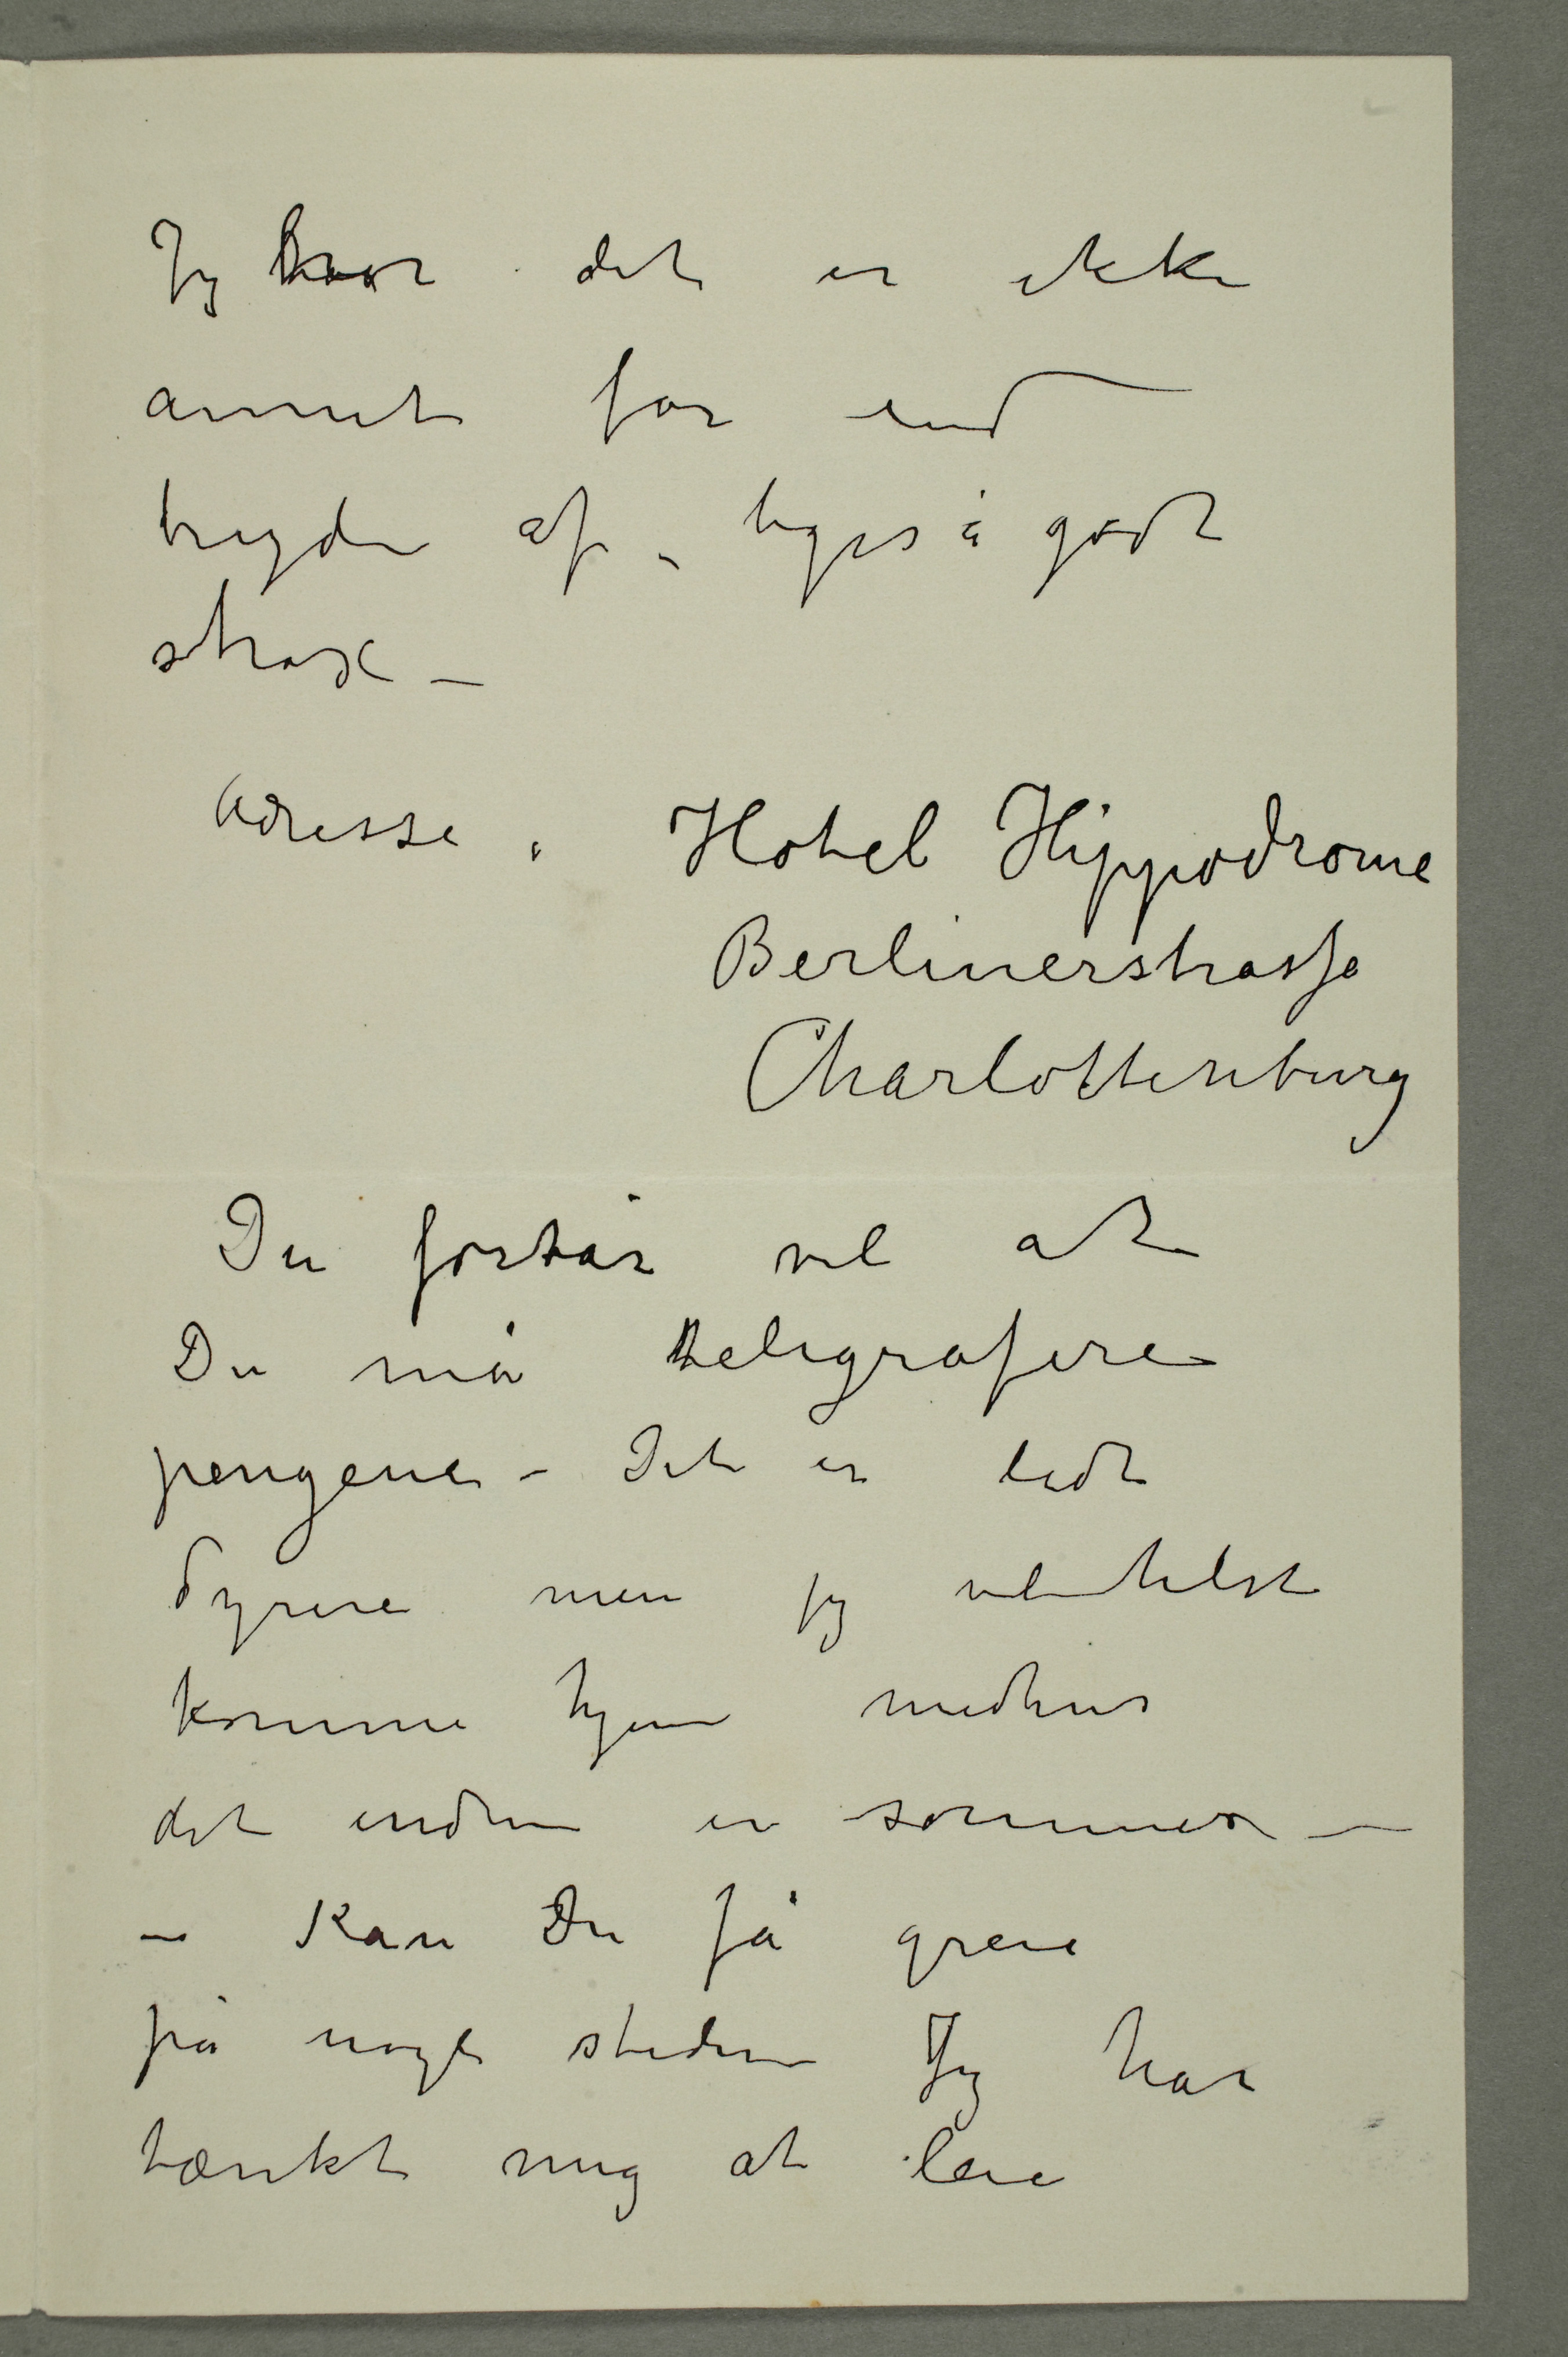 Jeg tror det er ikke
annet for end
trygde af – ligeså godt
strax –
Adresse. Hotel Hippodrome
Berlinerstrasse
Charlottenburg
Du forstår vel at
Du må telegrafere
pengene – Det er lidt
dyrere men jeg vil helst
komme hjem medens
det endnu er sommer –
– Kan Du få greie
på nogle steder Jeg har
tænkt mig at leie